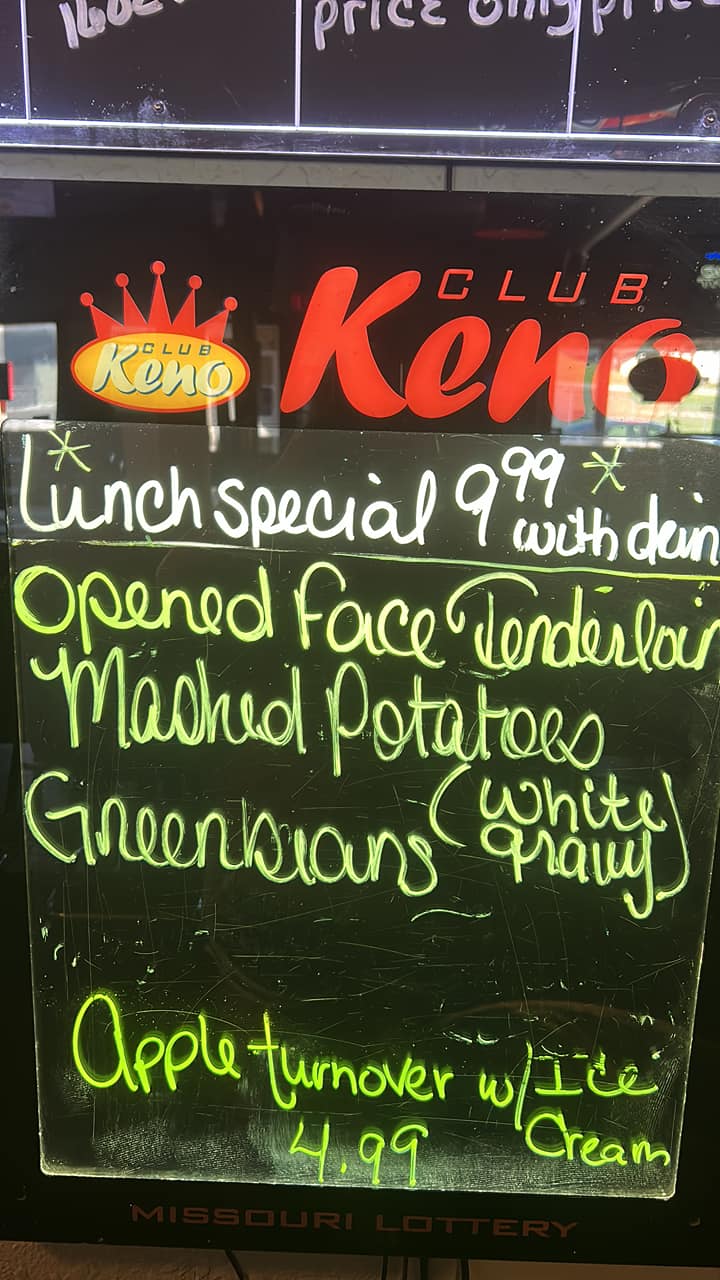 16oz
price only
CLUB
Keno
CLUB
Keno
* Lunch special 9.99 *
with
Opened face Tenderloin
Mashed Potatoes
Greenbeans (white
gravy)
Apple turnover w/ Ice
Cream
4.99
MISSOURI LOTTERY